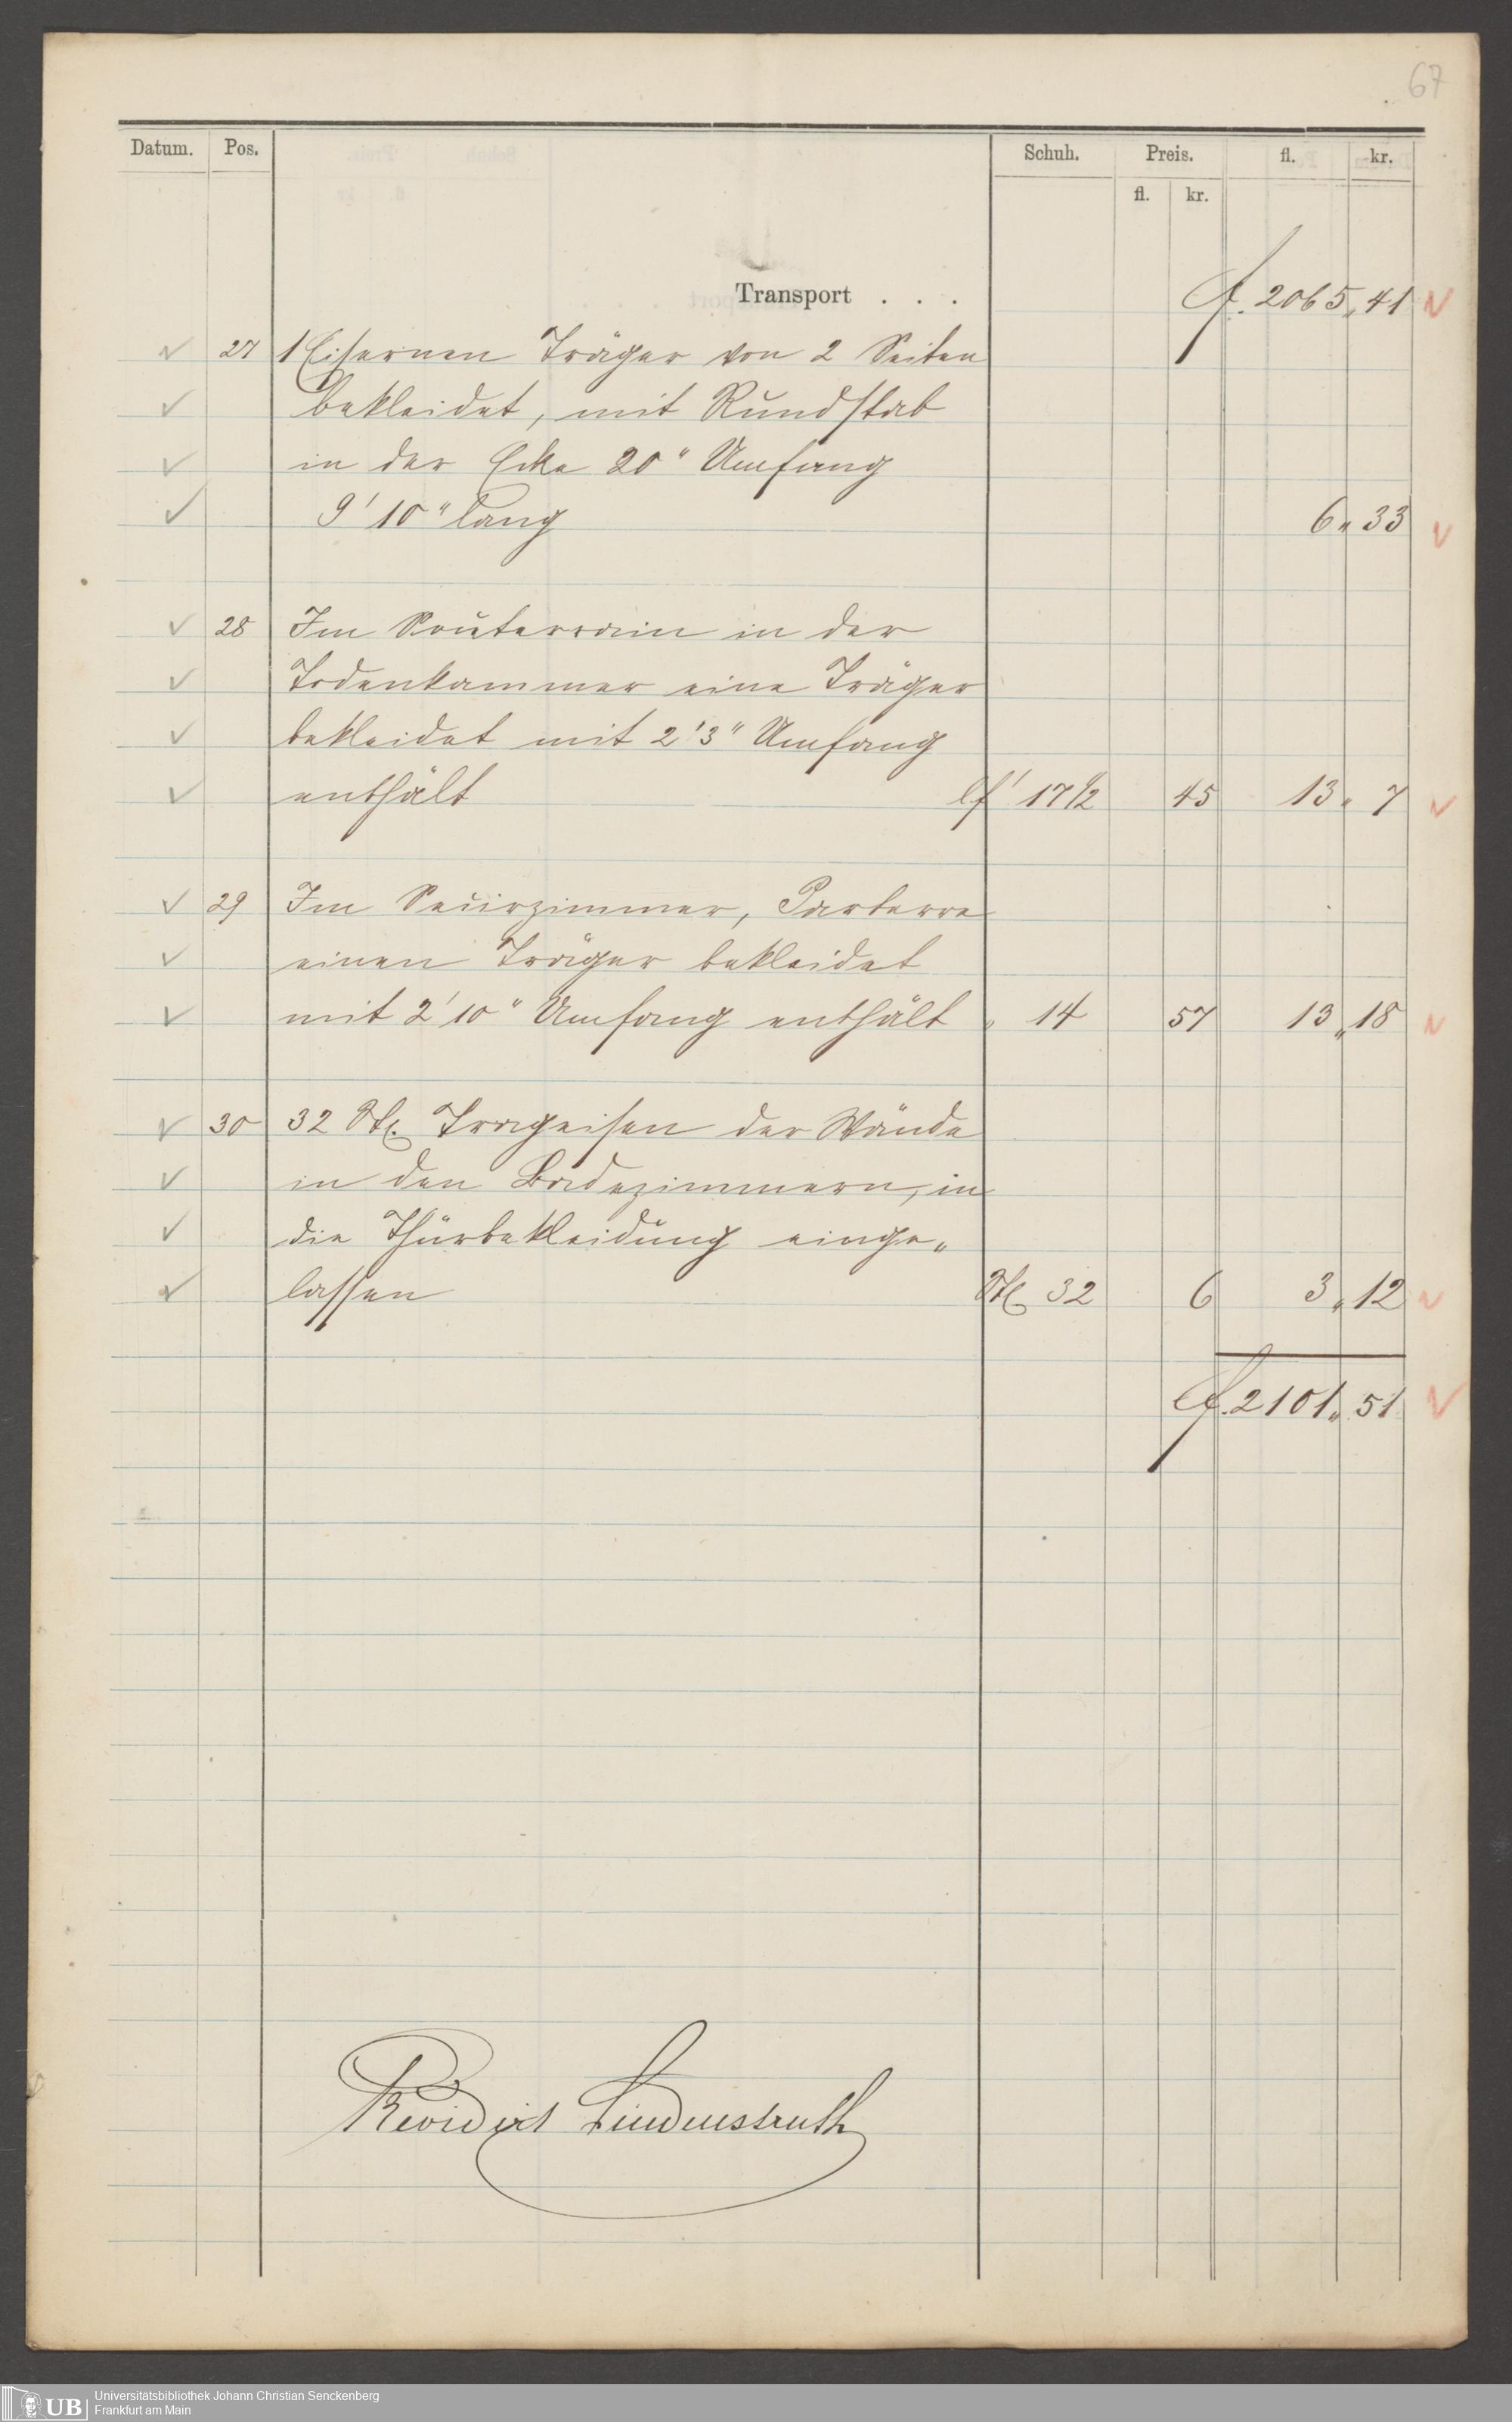 67
Datum. Pos. Schuh. Preis. fl. kr.
fl. kr.
Transport . . . fl. 2065 „ 41
27 1 Eisernen Träger von 2 Seiten
bekleidet, mit Rundstab
in der Ecke 20" Umfang
9' 10" lang 6 „ 33
28 Im Souterrain in der
Todenkammer eine Träger
bekleidet mit 2' 3" Umfang
enthält lf' 17 1/2 45 13 „ 7
29 Im Parterre
einen Träger bekleidet
mit 2' 10" Umfang enthält „ 14 57 13 „ 18
30 32 Stk. Trageisen der Wände
in den Badezimmern, in
die Thürbekleidung einge„
lassen Stk 32 6 3 „ 12
fl. 2101 „ 51
Revidirt Lindenstruth
UB
Universitätsbibliothek Johann Christian Senckenberg
Frankfurt am Main